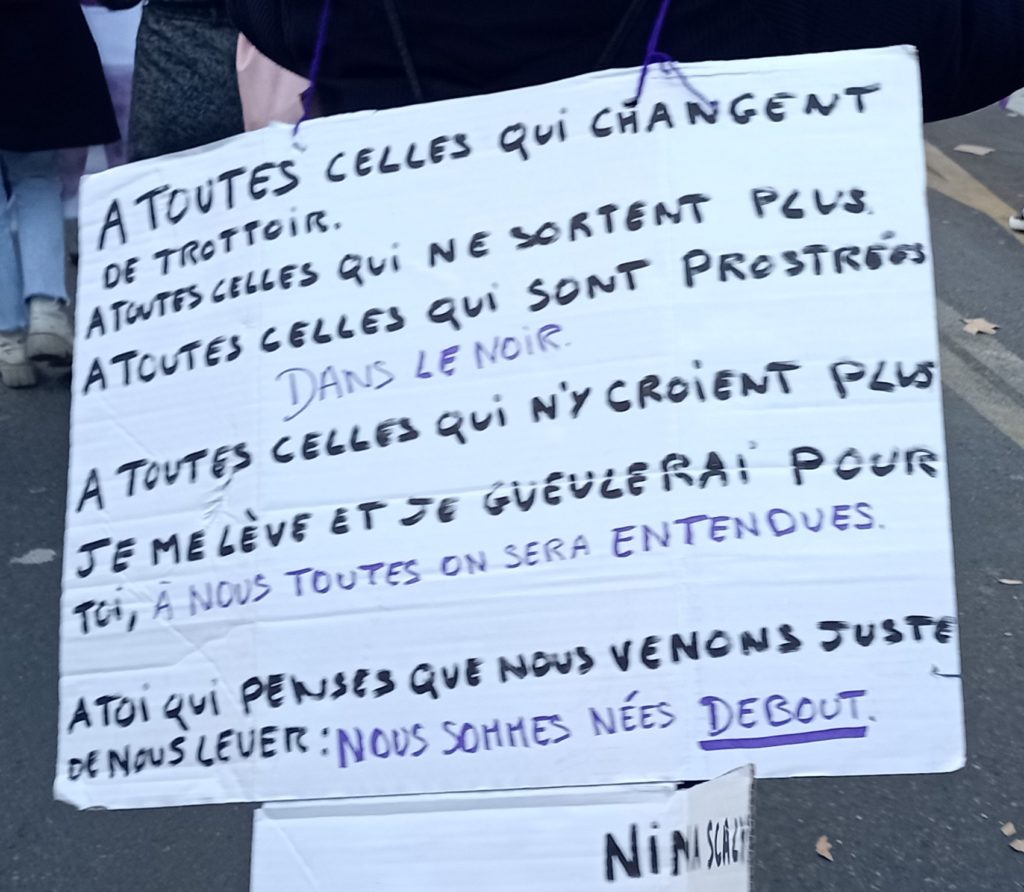 A TOUTES CELLES QUi CHANGENT
DE TROTTOiR.
A TOUTES CELLES QUi NE SORTENT PLUS.
A TOUTES CELLES QUi SONT PROSTRÉES
DANS LE NOiR.
A TOUTES CELLES QUi N'Y CROiENT PLUS
JE ME LÈVE ET JE GUEULERAi POUR
TOi, À NOUS TOUTES ON SERA ENTENDUES.
A TOi QUi PENSES QUE NOUS VENONS JUSTE
DE NOUS LEVER : NOUS SOMMES NÉES DEBOUT.
NiNA